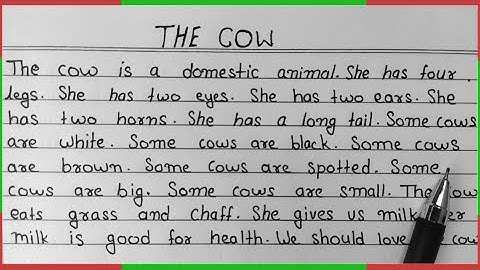 THE COW
The cow is a domestic animal. She has four
legs. She has two eyes. She has two ears. She
has two horns. She has a long tail. Some cows
are white. Some cows are black. Some cows
are brown. Some cows are spotted. Some
cows are big. Some cows are small. The cow
eats grass and chaff. She gives us milk. Her
milk is good for health. We should love cow